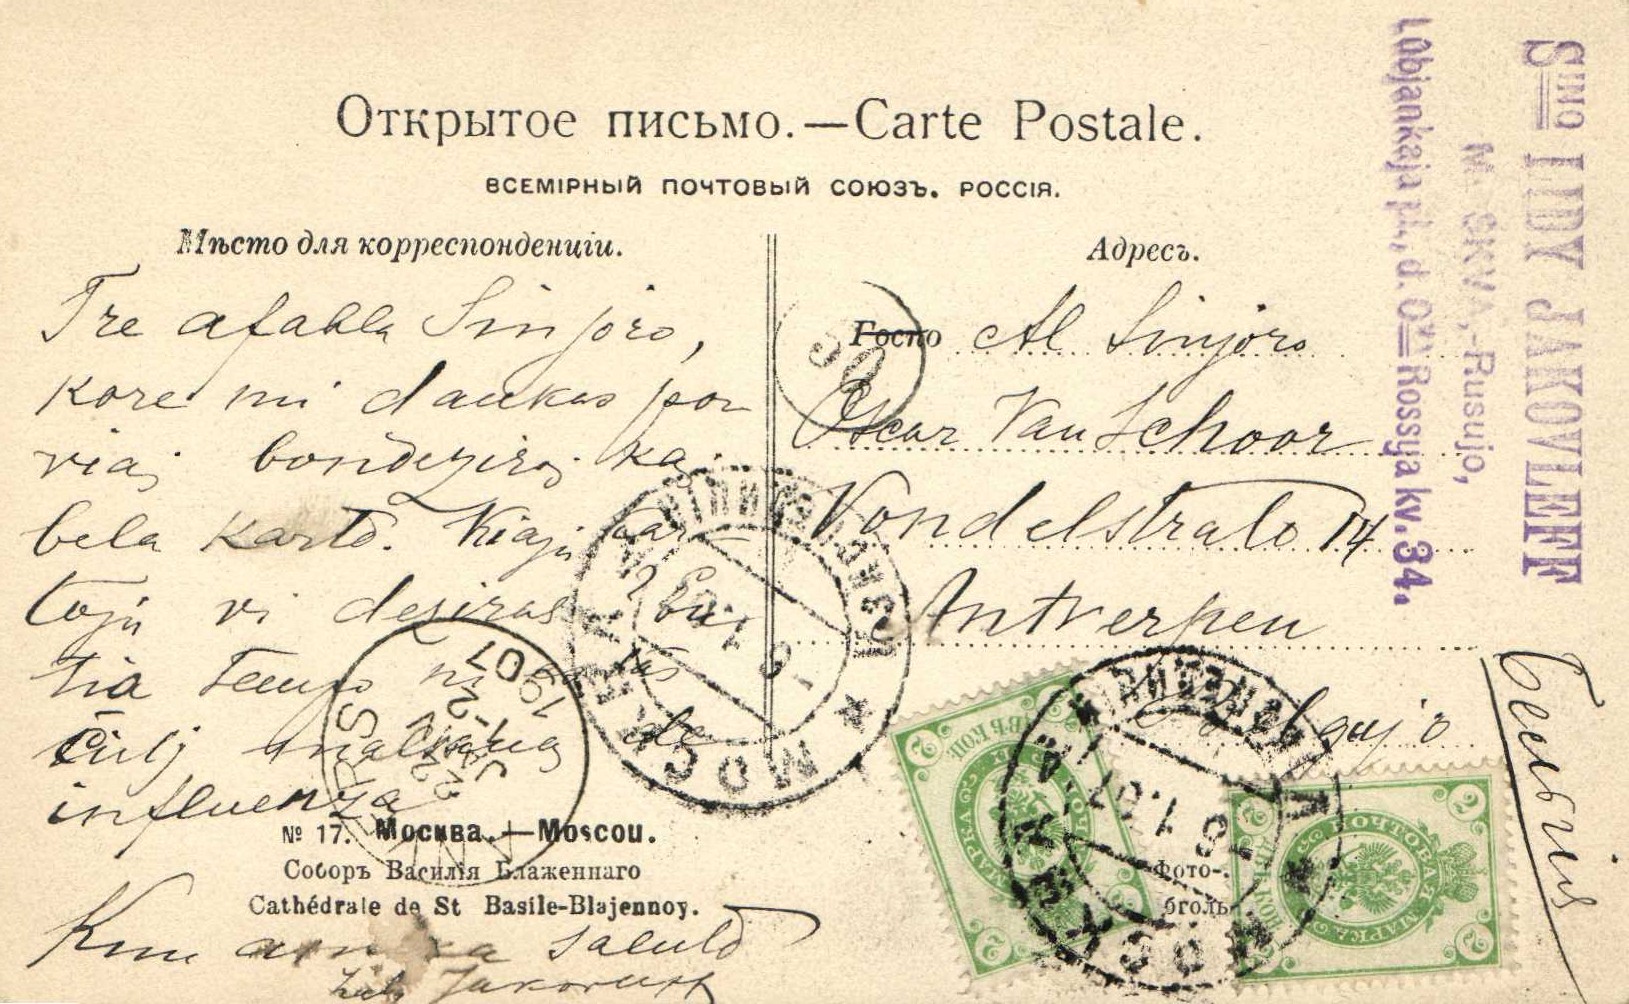 Открытое письмо.—Carte Postale.
ВСЕМІРНЫЙ ПОЧТОВЫЙ СОЮЗЪ. РОССІЯ.
Мѣсто для корреспонденціи.
Tre afabla Sinjoro,
kore mi dankas por
viaj bondeziroj kaj
bela karto. Kiajn kar-
tojn vi deziras?
tia tempo ni
ĉiuj malsanas de
influenza
№ 17. Москва.—Moscou.
Соборъ Василія Блаженнаго
Cathédrale de St Basile-Blajennoy.
Kun amika saluto
Адресъ.
Госпо Al Sinjoro
Oscar Van Schoor
Vondelstrato 14
Antverpen
Belgujo
Бельгія
Фото-
S-INO LIDY JAKOVLEFF
MOSKVA,-Rusujo,
Lubjankaja pl., d. O-va Rossija kv. 34.
30
МОСКВА
9 1.07
МОСКВА
1907
ПОЧТОВАЯ МАРКА
2
2
2
2